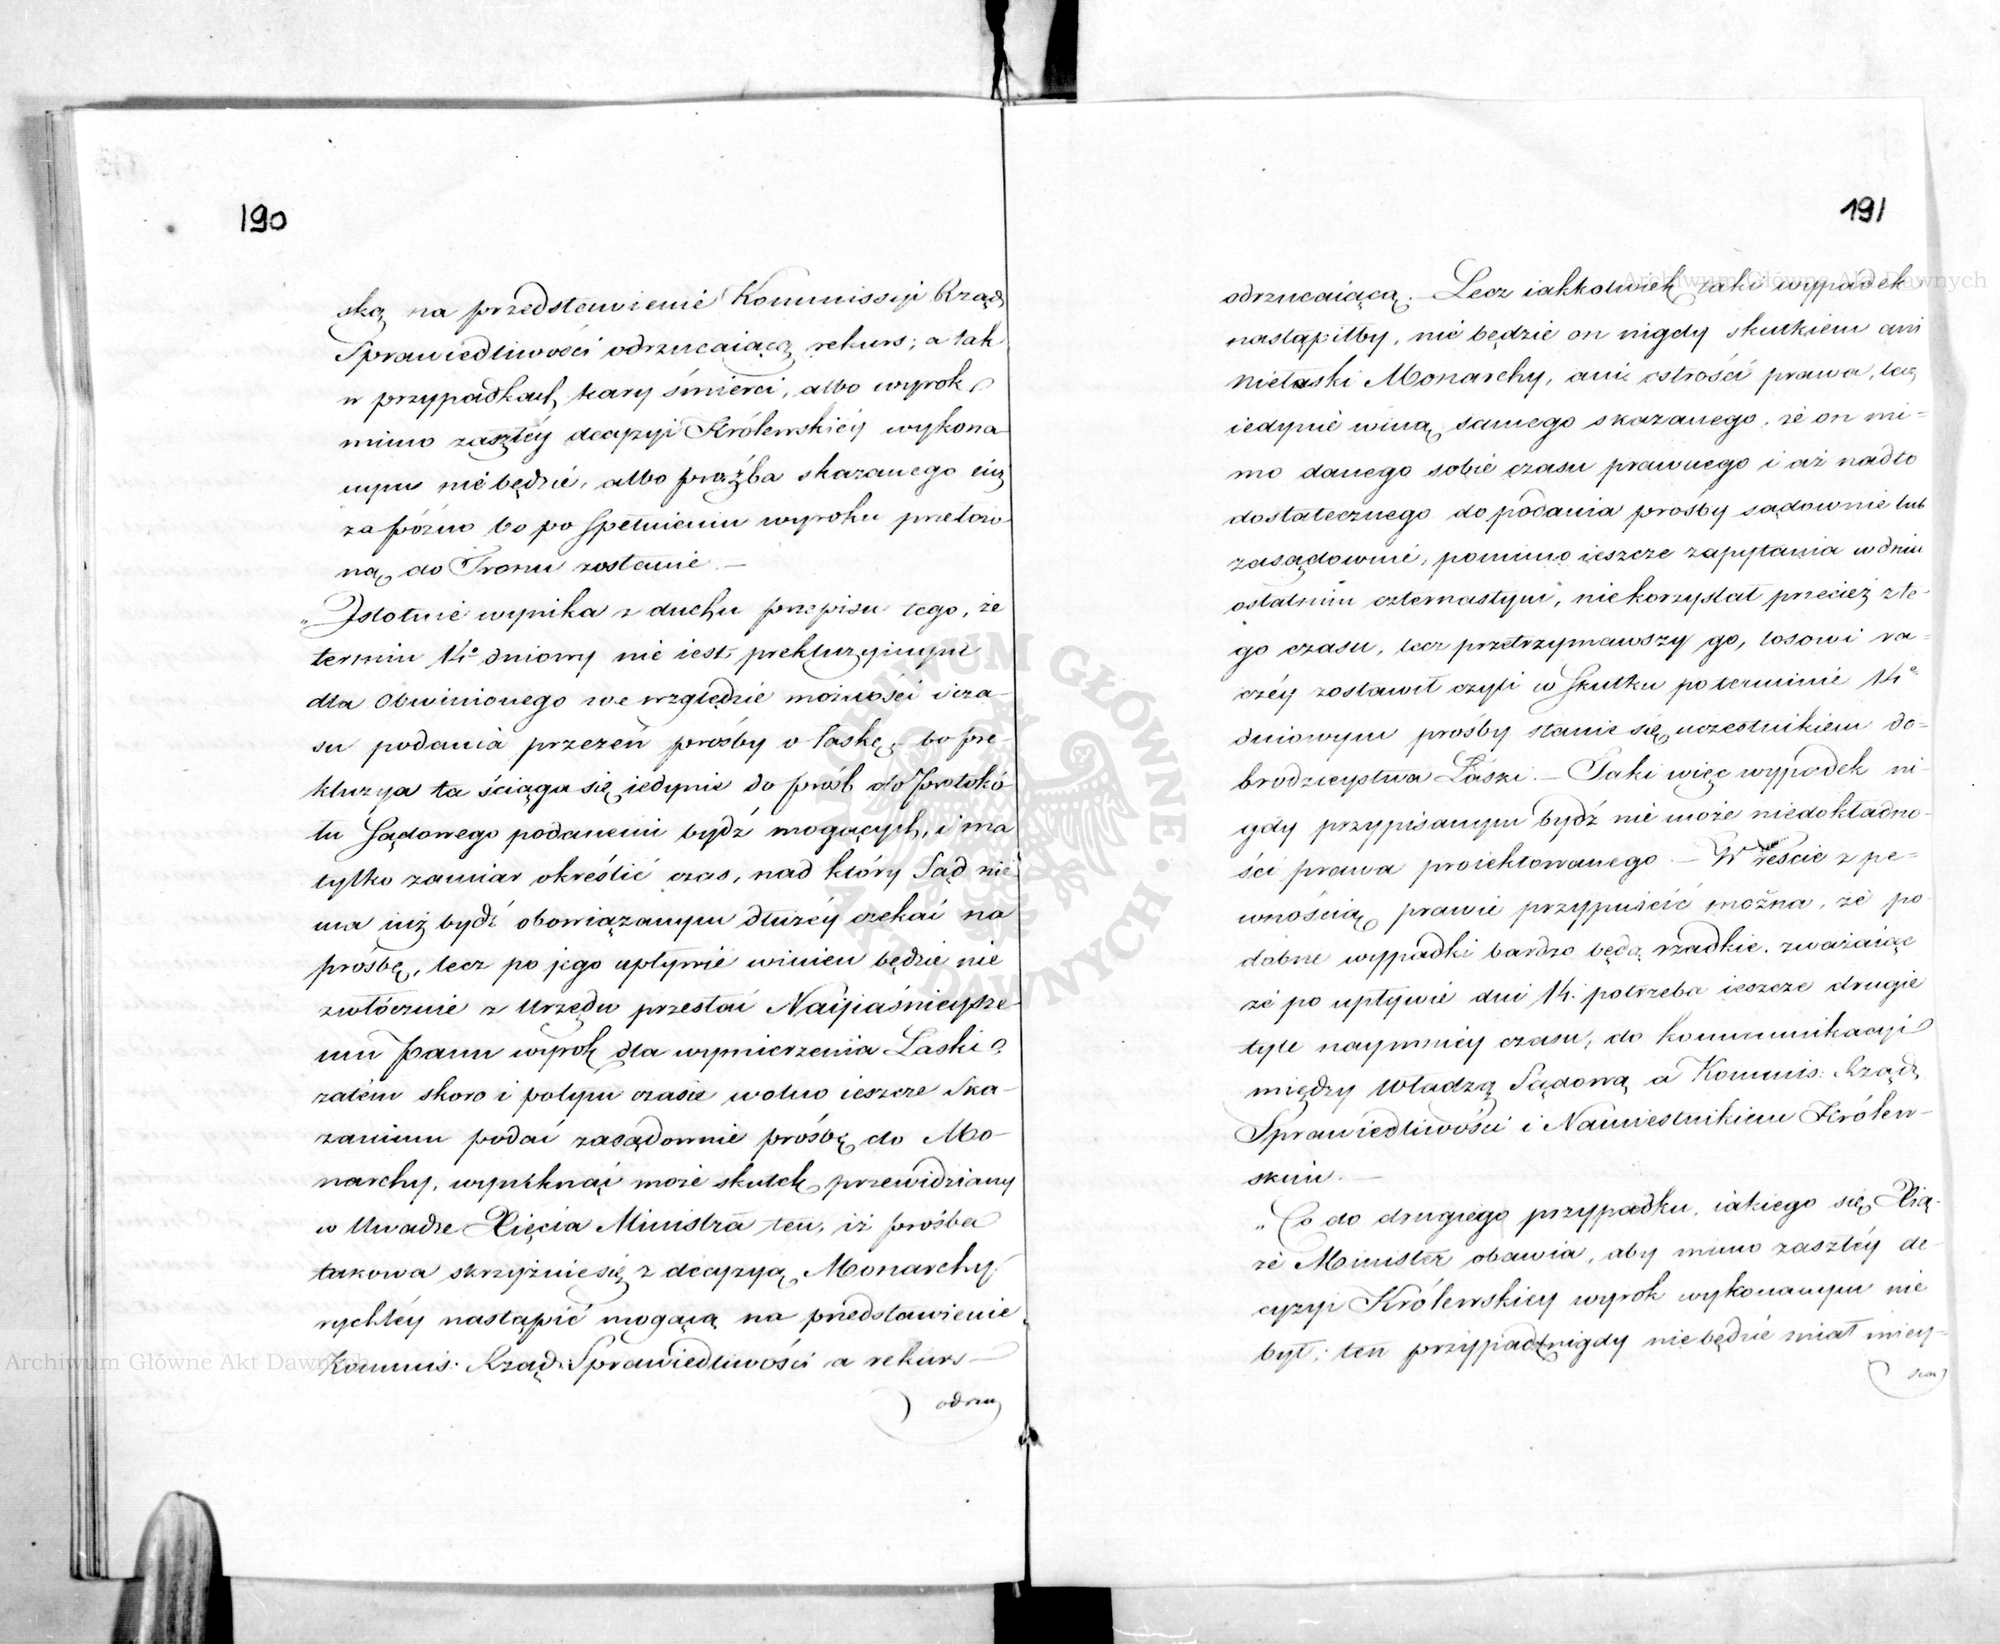 190
ską na przedstawienie Kommissyi Rząd:
Sprawiedliwości odrzucaiącą rekurs; a tak
w przypadkach kary śmierci, albo wyrok
mimo zaszłéy decyzyi Królewskiéy wykona-
nym nie będzie, albo proźba skazanego iuż
za późno bo po spełnieniu wyroku przełożo
ną do Tronu zostanie. —
„Istotnie wynika z duchu przepisu tego, że
termin 14o dniowy nie iest prekluzyinym
dla Obwinionego we względzie możności i cza-
su podania przezeń prośby o łaskę, bo pre-
kluzya ta ściąga się iedynie do próśb do protokó
łu Sądowego podanemi bydź mogących, i ma
tylko zamiar określić czas, nad który Sąd nie
ma iuż bydź obowiązanym dłużéy czekać na
prośbę, lecz po jego upływie winien będzie nie
zwłócznie z Urzędu przesłać Nayiaśnieysze-
mu Panu wyrok dla wymierzenia Łaski
zatém skoro i po tym czasie wolno ieszcze Ska-
zanemu podać zasądownie prośbę do Mo-
narchy, wyniknąć może skutek przewidziany
w Uwadze Xięcia Ministra ten, iż prośba
takowa skrzyżuie się z decyzyą Monarchy
rychléy nastąpić mogącą na przedstawienie
Kommis: Rząd: Sprawiedliwości a rekurs —
odrzu
191
odrzucaiącą. — Lecz iakkolwiek taki wypadek
nastąpiłby, nie będzie on nigdy skutkiem ani
niełaski Monarchy, ani ostrości prawa, lecz
iedynie winą samego skazanego, że on mi-
mo danego sobie czasu prawnego i aż nadto
dostatecznego do podania prośby sądownie lub
zasądownie, pomimo ieszcze zapytania w dniu
ostatnim czternastym, nie korzystał przecież z te-
go czasu, lecz przetrzymawszy go, losowi ra-
czéy zostawił czyli w skutku po terminie 14o
dniowym prośby stanie się uczestnikiem do-
brodzieystwa Łaski. — Taki więc wypadek ni-
gdy przypisanym bydź nie może niedokładno-
ści prawa proiektowanego. — W reście z pe-
wnością prawie przypuścić można, że po
dobne wypadki bardzo będą rzadkie, zważaiąc
że po upływie dni 14. potrzeba ieszcze drugie
tyle naymniey czasu, do kommunikacyi
między Władzą Sądową a Kommis: Rząd:
Sprawiedliwości i Namiestnikiem Królew-
skim. —
„Co do drugiego przypadku, iakiego się Xią-
że Minister obawia, aby mimo zaszłéy de-
cyzyi Królewskiey wyrok wykonanym nie
był; ten przypadek nigdy nie będzie miał miey-
sca
Archiwum Główne Akt Dawnych
Archiwum Główne Akt Dawnych
ARCHIWUM GŁÓWNE · AKT DAWNYCH ·